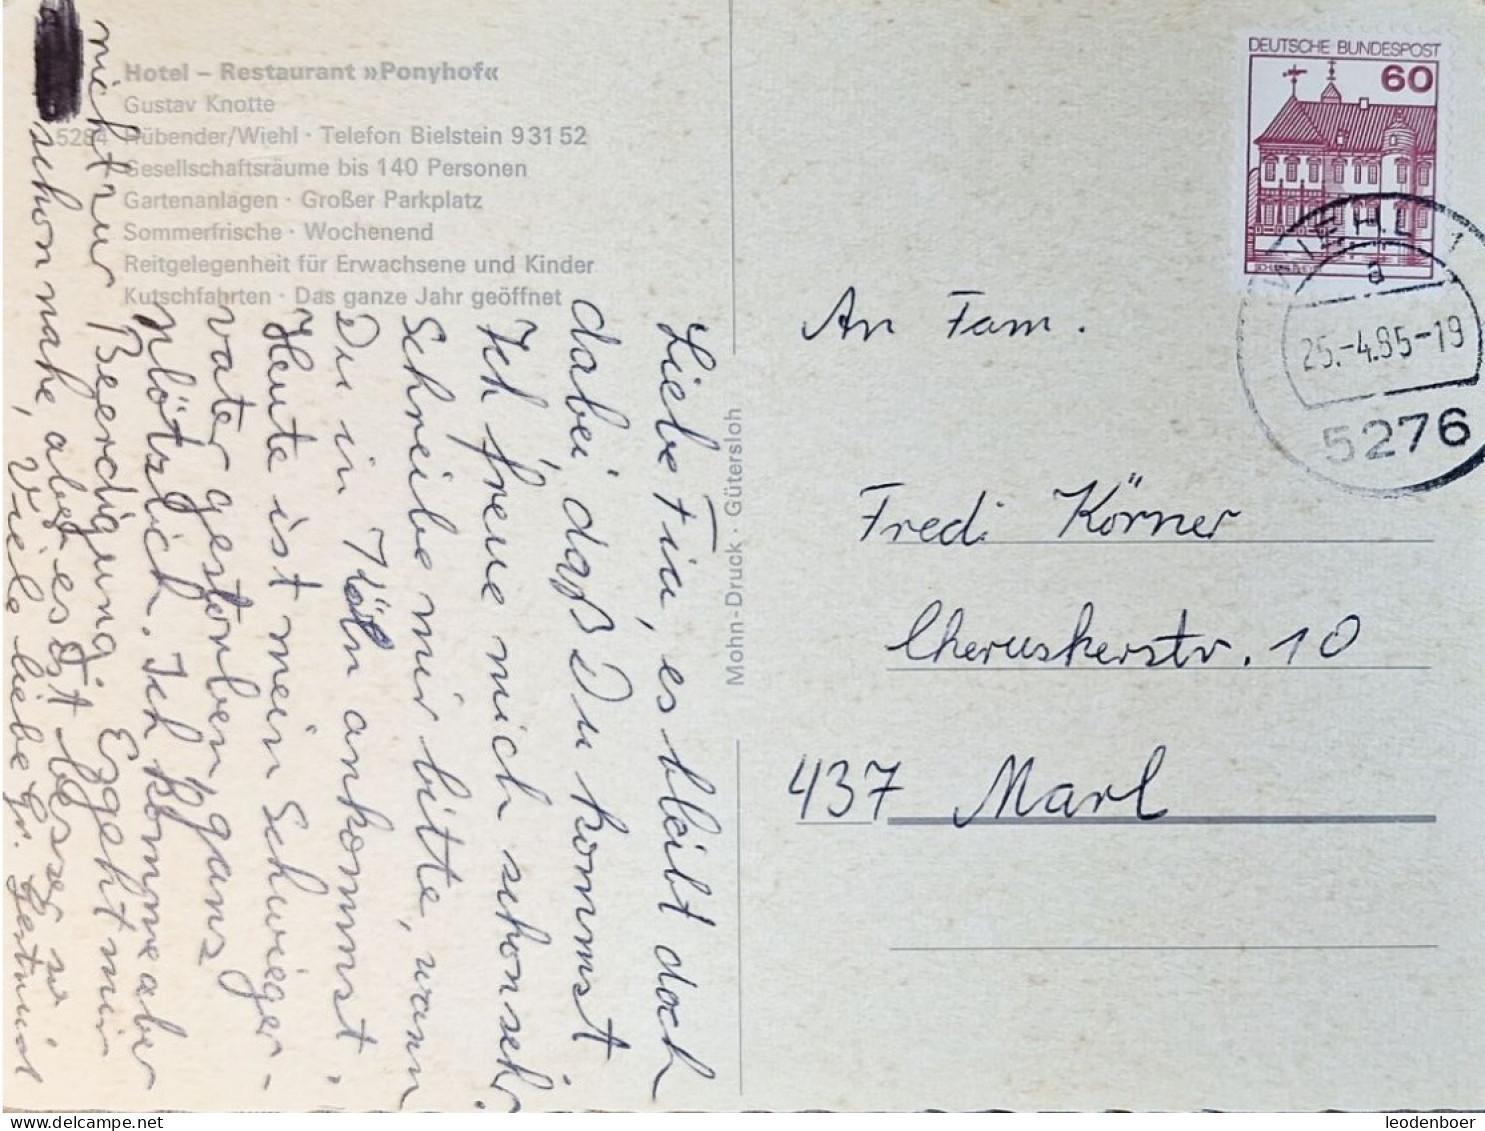 Hotel – Restaurant »Ponyhof«
Gustav Knotte
5284 Hübender/Wiehl · Telefon Bielstein 9 31 52
Gesellschaftsräume bis 140 Personen
Gartenanlagen · Großer Parkplatz
Sommerfrische · Wochenend
Reitgelegenheit für Erwachsene und Kinder
Kutschfahrten · Das ganze Jahr geöffnet
Liebe Fini, es bleibt doch
dabei, daß Du kommst.
Ich freue mich schon sehr.
Schreibe mir bitte, wann
Du in Köln ankommst.
Heute ist mein Schwieger-
vater gestorben, ganz
plötzlich. Ich komme aber
nicht zur Beerdigung. Es geht mir
schon nahe, aber es ist besser so.
Viele liebe Gr. Gertrud
Mohn-Druck · Gütersloh
DEUTSCHE BUNDESPOST
60
WIEHL 1
a
25.-4.85-19
5276
An Fam.
Fredi Körner
Cheruskerstr. 10
437 Marl
leodenboer
delcampe.net